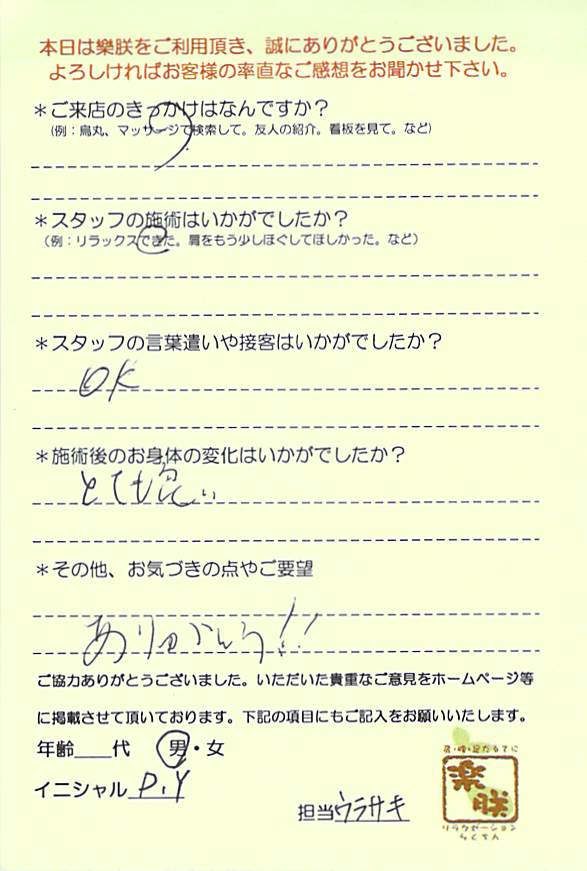 本日は樂朕をご利用頂き、誠にありがとうございました。
よろしければお客様の率直なご感想をお聞かせ下さい。
＊ご来店のきっかけはなんですか？
(例：烏丸、マッサージで検索して。友人の紹介。看板を見て。など)
＊スタッフの施術はいかがでしたか？
(例：リラックスできた。肩をもう少しほぐしてほしかった。など)
＊スタッフの言葉遣いや接客はいかがでしたか？
OK
＊施術後のお身体の変化はいかがでしたか？
とても良い
＊その他、お気づきの点やご要望
ありがとう!!
ご協力ありがとうございました。いただいた貴重なご意見をホームページ等
に掲載させて頂いております。下記の項目にもご記入をお願いいたします。
年齢＿＿代 男・女
イニシャル P.Y
担当 ウラサキ
樂
朕
リラクゼーション
らくちん